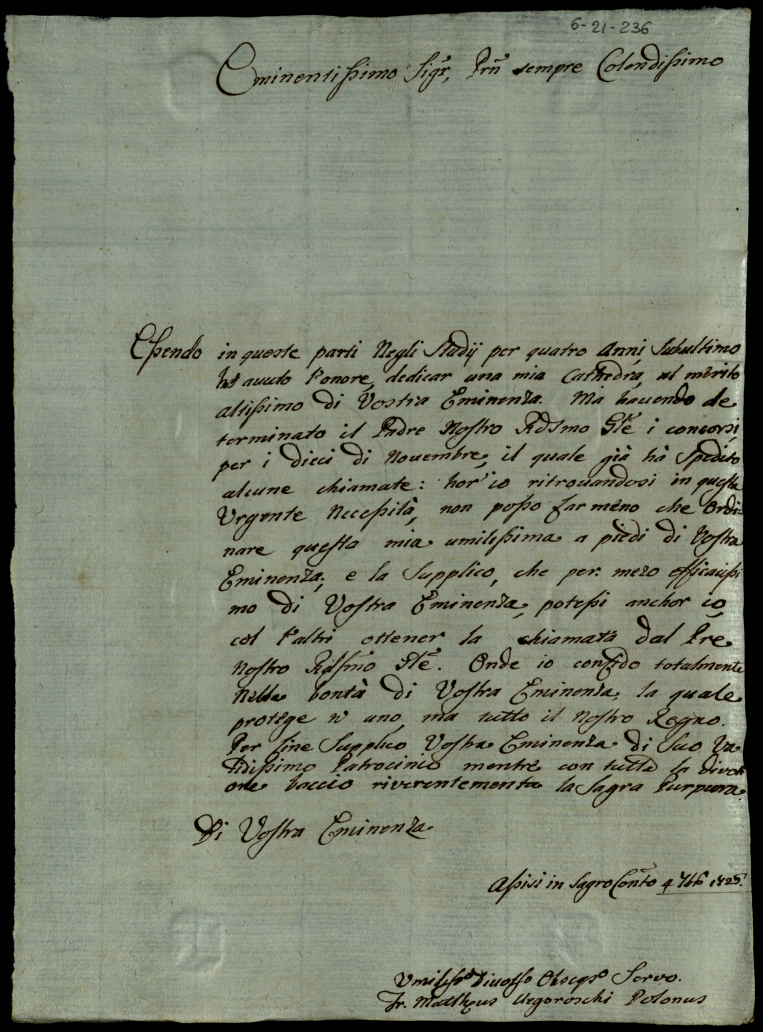 6-21-236
Eminentissimo Sigr, Prn̄ sempre Colendissimo
Essendo in queste parti Negli Studij per quatro Anni, Subultimo
hò avuto l'onore, dedicar una mia Cathedra, al merito
altissimo di Vostra Eminenza. Mà havendo de
terminato il Padre Nostro Rdsmo Gle i concorsi,
per i dieci di Novembre, il quale già hà Spedito
alcune chiamate: hor'io ritrovandosi in questa
Urgente Necessità, non posso far meno che Ordi
nare questa mia umilissima a piedi di Vostra
Eminenza, e la Supplico, che per mezo efficacissi
mo di Vostra Eminenza, potessi anchor io,
col l'altri ottener la chiamata dal Pre
Nostro Rdsmo Gle. Onde io confido totalmente
Nella bontà di Vostra Eminenza, la quale
protege n' uno, ma tutto il Nostro Regno.
Per fine Supplico Vostra Eminenza di Suo Va
lidissimo Patrocinio mentre con tutta la divoti
one baccio riverentemente la Sagra Purpura.
Di Vostra Eminenza
Assisi in Sagro Conto 4 7bre 1725.
Umilisso Divotsso Obseqso Servo.
Fr. Mattheus Polonus